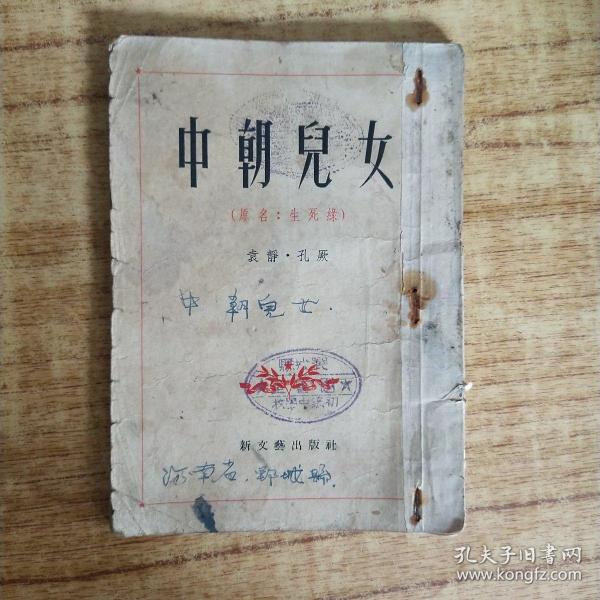 中朝兒女
(原名：生死緣)
袁靜·孔厥
中朝兒女.
新文藝出版社
河南省.郾城縣.
孔夫子旧书网
www.kongfz.com